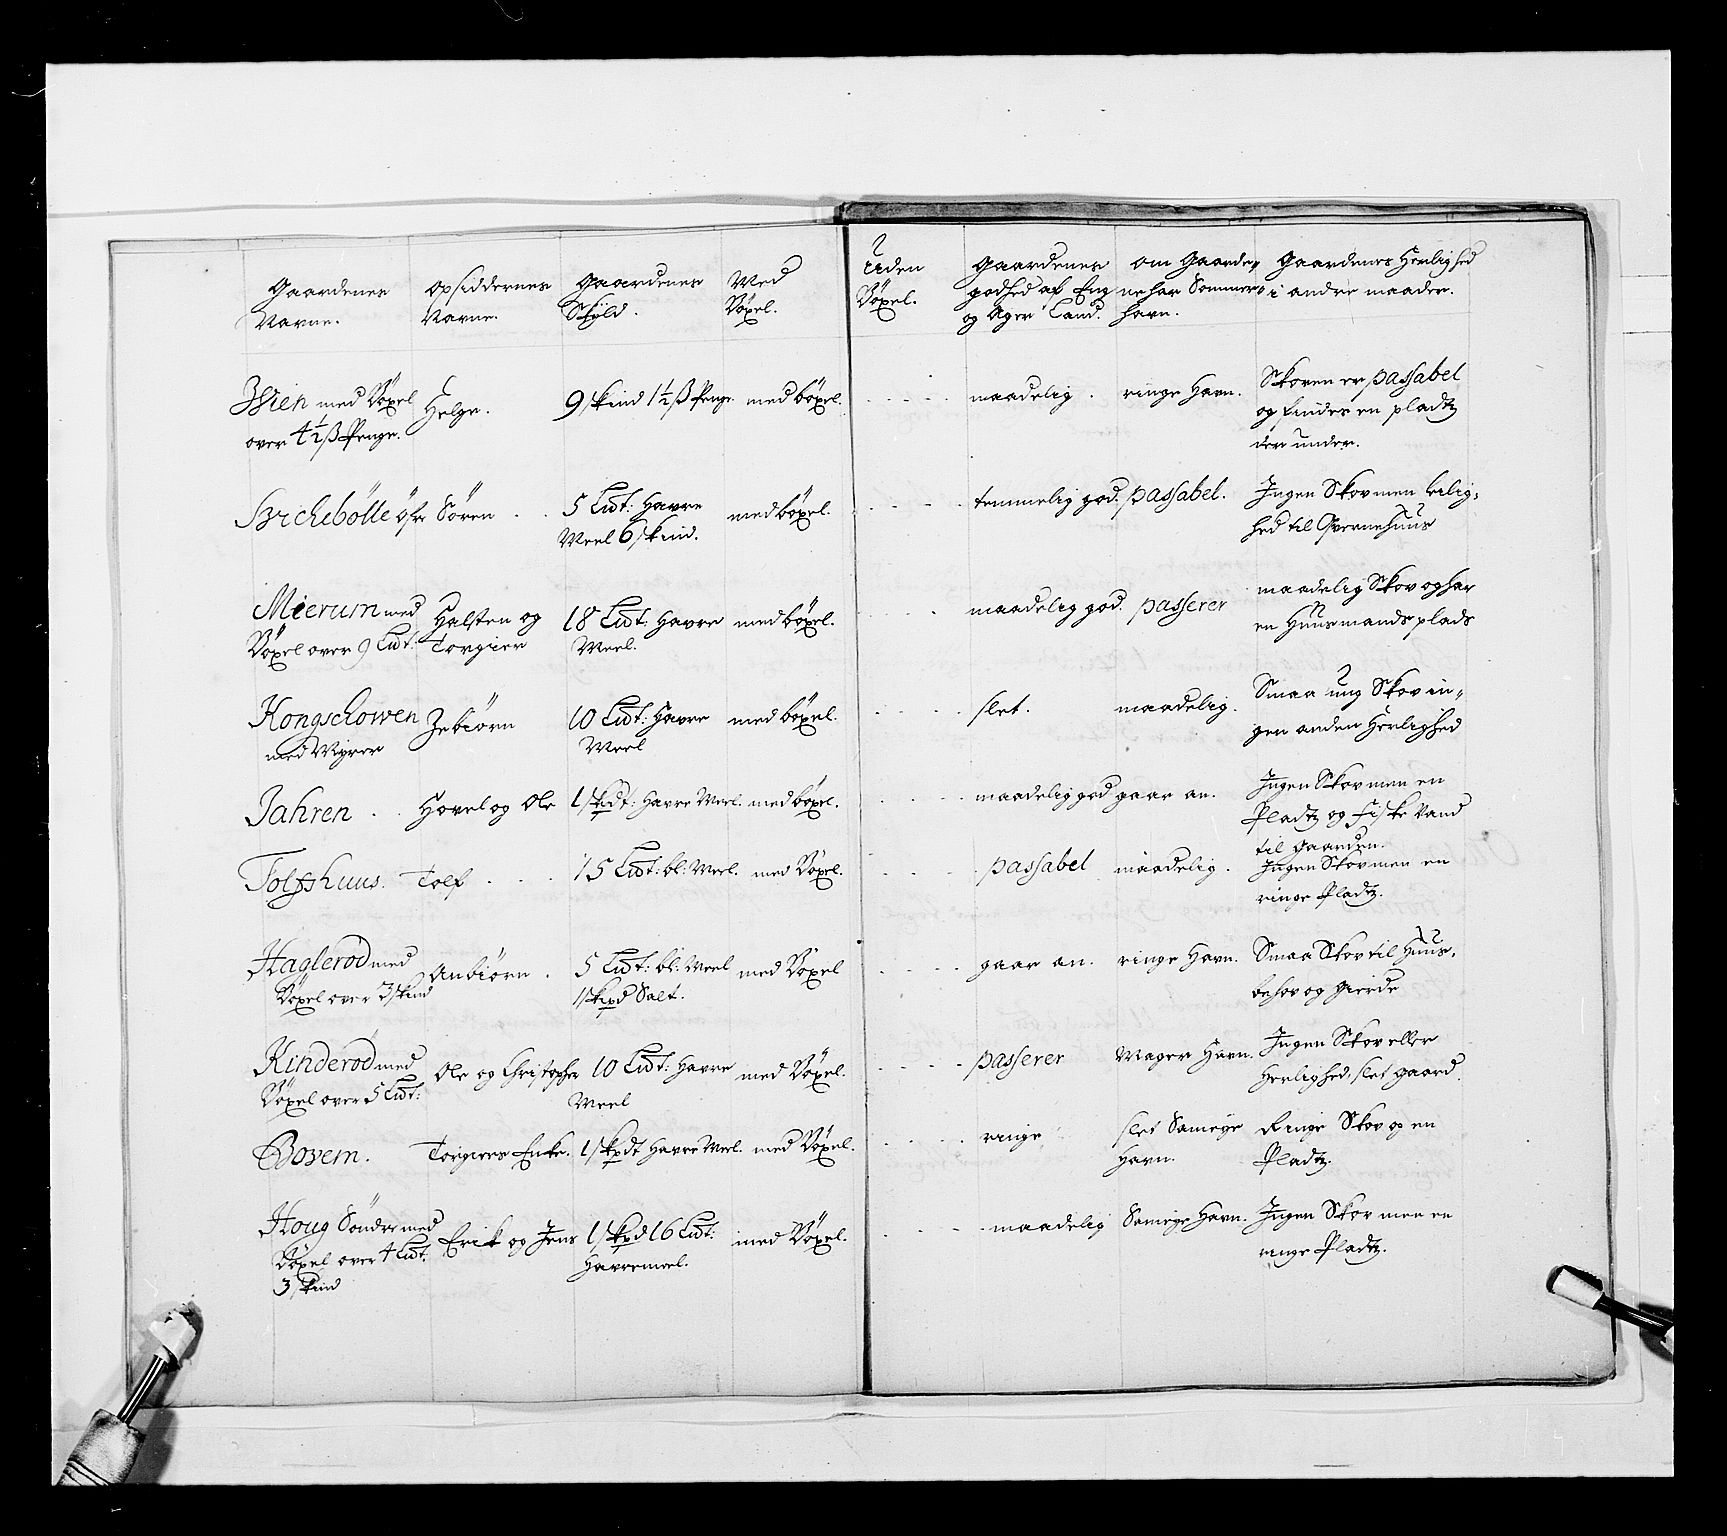 Gaardenes Navne.
Opsiddernes Navne.
Gaardenes Skyld.
Med Böxel.
Uden Böxel.
Gaardenes godhed af Eng og Ager Land.
Om Gaarde, ne har Sommer, havn.
Gaardenes Herlighed i andre maader.
med Böxel over 4½ ß Penge.
Helge.
9 skind 1½ ß Penge
med böxel.
maadelig.
ringe Havn.
Skoven er passabel
og findes en pladtz
der under.
Birchebölle öfre
Sören
5 Lwt: Havre
Meel 6 skind.
med böxel.
temmelig god.
passabel.
Ingen Skov men leilig,
hed til Qvernehuus
Mierum med
Böxel over 9 Lwt:
Halsten og
Torgier
18 Lwt: Havre
Meel.
med böxel.
maadelig god.
passerer
maadelig Skov og har
en Huusmands plads
Kongschowen
med Myrer
Zebiörn
10 Lwt: Havre
Meel
med böxel.
slet.
maadelig.
Smaa ung Skov in,
gen anden Herlighed
Jahren
Hovel og Ole
1 skpdt: Havre Meel.
med böxel.
maadelig god
gaar an.
Ingen Skov men en
Pladtz og Fiske Vand
til Gaarden.
Tolfshuus.
Tolf
15 Lwt: bl: Meel.
med Böxel.
passabel
maadelig.
Ingen Skov men en
ringe Pladtz.
Haglerød med
Böxel over 3 skind
Anbiörn.
5 Lwt: bl: Meel
1 skipd Salt.
med Böxel
gaar an.
ringe Havn.
Smaa Skov til Huus,
behov og Gierde
Kinderød med
Böxel over 5 Lwt:
Ole og Christopher
10 Lwt: Havre
Meel
med Böxel.
passerer
Mager Havn.
Ingen Skov eller
Herlighed, slet Gaard.
Bovem.
Torgiers Enke.
1 skpdt Havre Meel.
med Böxel.
ringe
slet Sameye
Havn.
Ringe Skov og en
Pladtz.
Houg Söndre med
Böxel over 4 Lwt:
3 skind
Erik og Jens
1 skpd 16 Lwt:
Havremeel.
med Böxel.
maadelig
Sameye Havn.
Ingen Skov men en
ringe Pladtz.